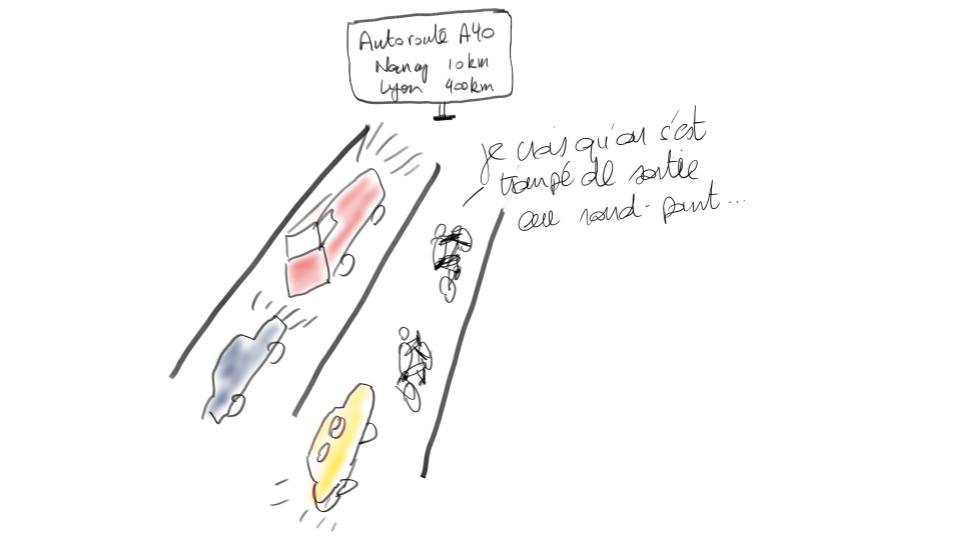 Autoroute A40
Nancy 10km
Lyon 400km
je crois qu'on s'est
trompé de sortie
au rond-point...